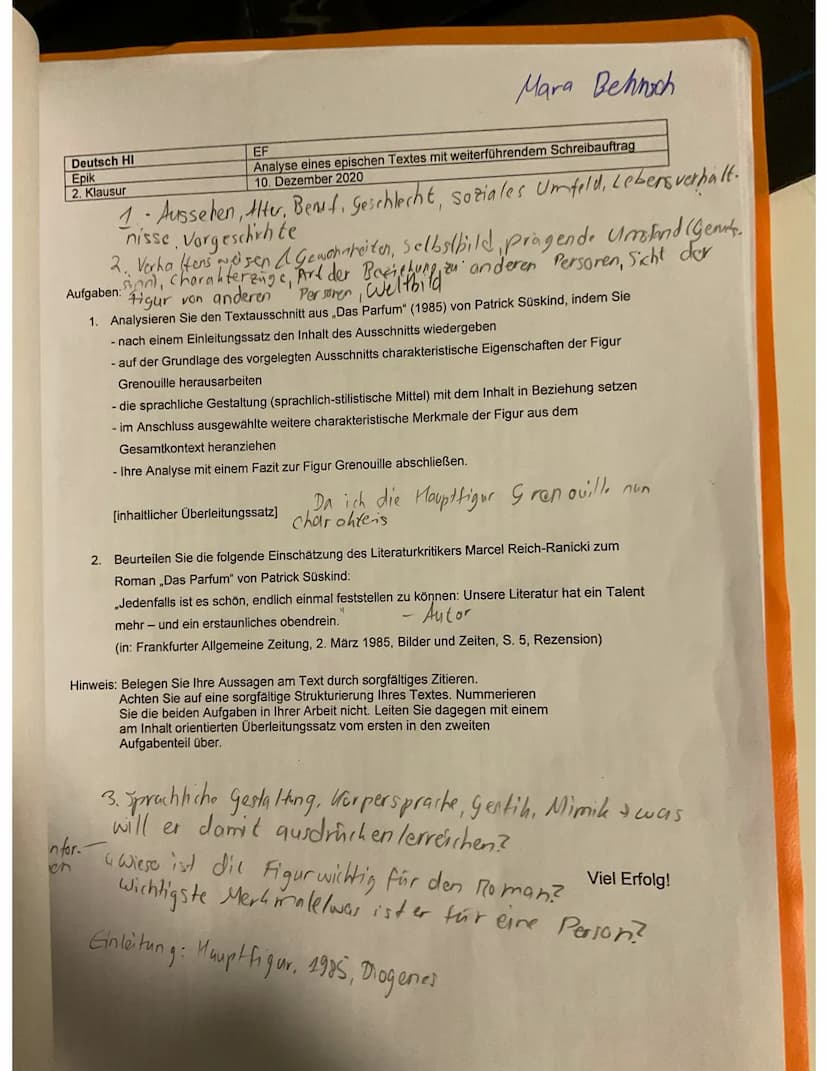 Mara Behnsch
Deutsch HI
EF
Epik
Analyse eines epischen Textes mit weiterführendem Schreibauftrag
2. Klausur
10. Dezember 2020
1. Aussehen, Alter, Beruf, Geschlecht, soziales Umfeld, Lebensverhält-
nisse, Vorgeschichte
2. Verhaltensweisen & Gewohnheiten, Selbstbild, prägende Umstand
Charakterzüge, Art der Beziehung zu anderen Personen, Sicht der
Figur von anderen Personen, Weltbild
Aufgaben:
1. Analysieren Sie den Textausschnitt aus „Das Parfum" (1985) von Patrick Süskind, indem Sie
- nach einem Einleitungssatz den Inhalt des Ausschnitts wiedergeben
- auf der Grundlage des vorgelegten Ausschnitts charakteristische Eigenschaften der Figur
Grenouille herausarbeiten
- die sprachliche Gestaltung (sprachlich-stilistische Mittel) mit dem Inhalt in Beziehung setzen
- im Anschluss ausgewählte weitere charakteristische Merkmale der Figur aus dem
Gesamtkontext heranziehen
- Ihre Analyse mit einem Fazit zur Figur Grenouille abschließen.
Da ich die Hauptfigur Grenouille nun
[inhaltlicher Überleitungssatz]
2. Beurteilen Sie die folgende Einschätzung des Literaturkritikers Marcel Reich-Ranicki zum
Roman „Das Parfum" von Patrick Süskind:
„Jedenfalls ist es schön, endlich einmal feststellen zu können: Unsere Literatur hat ein Talent
mehr – und ein erstaunliches obendrein."
- Autor
(in: Frankfurter Allgemeine Zeitung, 2. März 1985, Bilder und Zeiten, S. 5, Rezension)
Hinweis: Belegen Sie Ihre Aussagen am Text durch sorgfältiges Zitieren.
Achten Sie auf eine sorgfältige Strukturierung Ihres Textes. Nummerieren
Sie die beiden Aufgaben in Ihrer Arbeit nicht. Leiten Sie dagegen mit einem
am Inhalt orientierten Überleitungssatz vom ersten in den zweiten
Aufgabenteil über.
3. Sprachliche Gestaltung, Körpersprache, Gestik, Mimik → was
will er damit ausdrücken/erreichen?
Wieso ist die Figur wichtig für den Roman?
Viel Erfolg!
Wichtigste Merkmale/was ist er für eine Person?
Einleitung: Hauptfigur, 1985, Diogenes